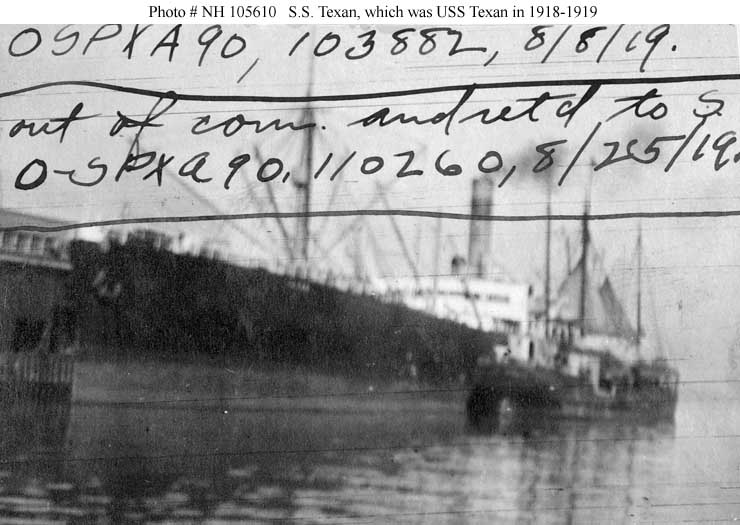 Photo # NH 105610 S.S. Texan, which was USS Texan in 1918-1919
OSPXA90, 103882, 8/8/19.
out of com. and ret'd to S.
O-SPXA90, 110260, 8/25/19.